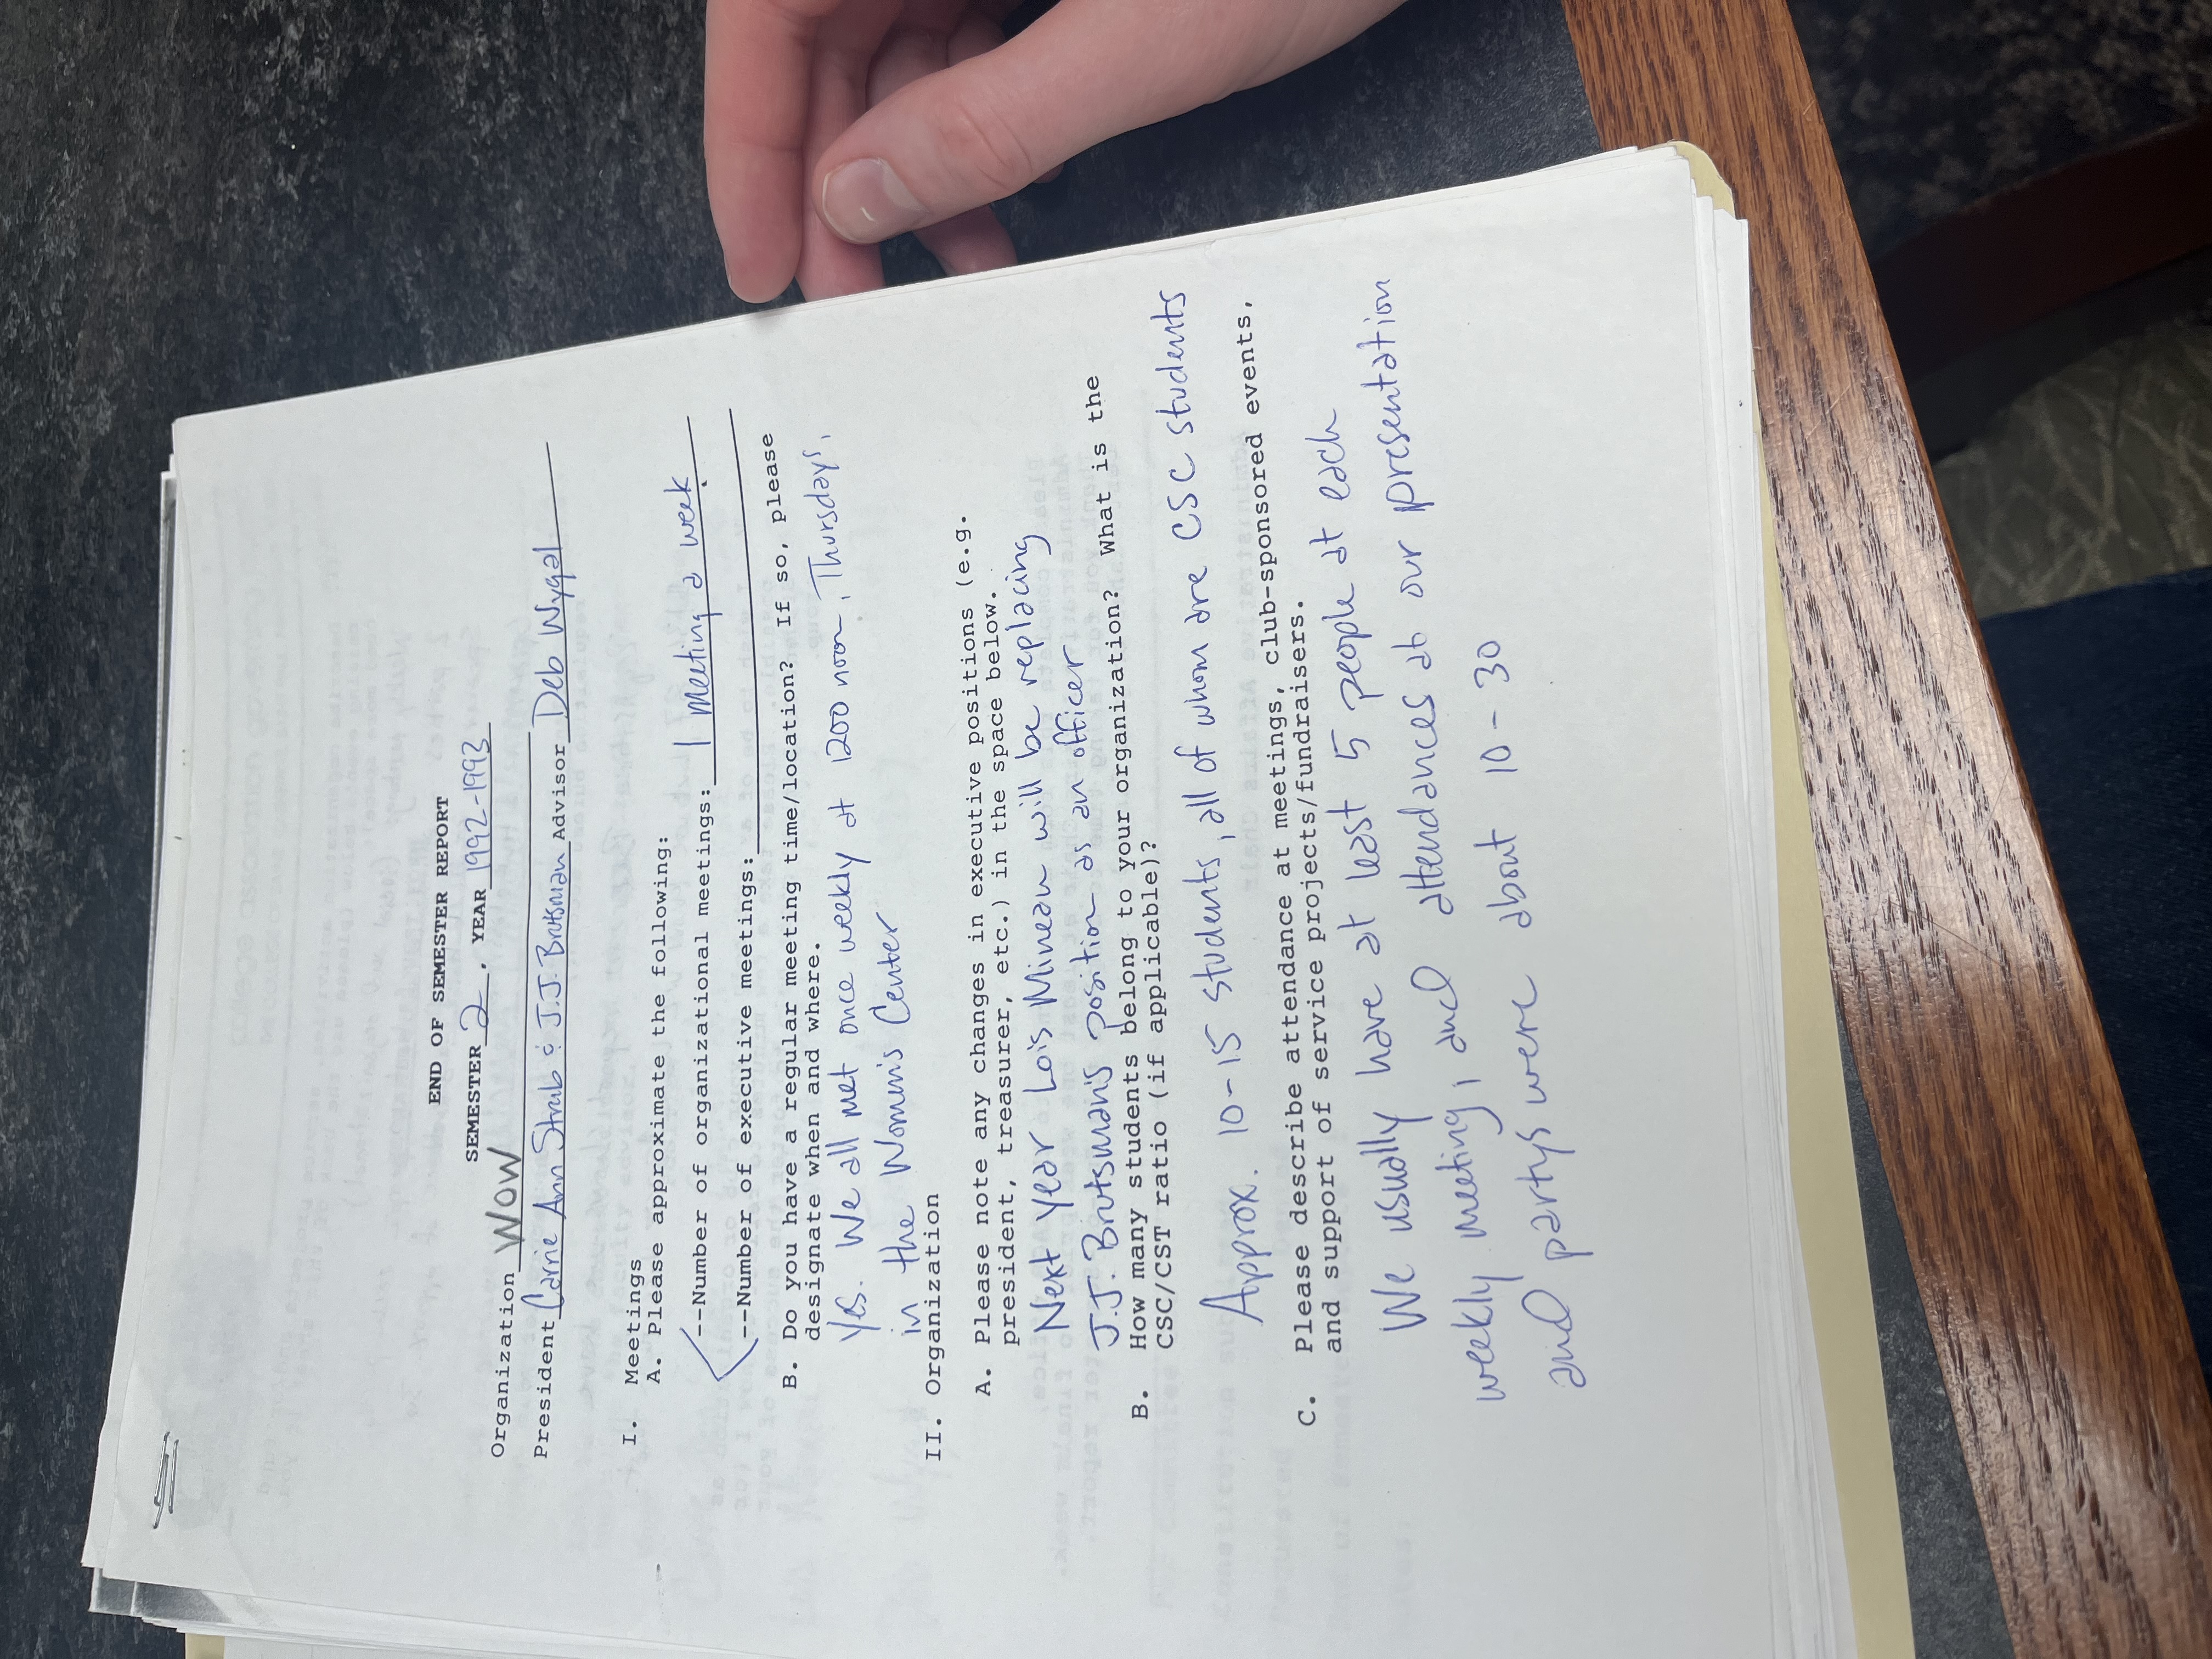 END OF SEMESTER REPORT
SEMESTER 2, YEAR 1992-1993
Organization WOW
President Carrie Ann Strub & J.J. Brutsman Advisor Deb Wygal
I. Meetings
A. Please approximate the following:
--Number of organizational meetings: 1 meeting a week
--Number of executive meetings:
B. Do you have a regular meeting time/location? If so, please
designate when and where.
Yes. We all met once weekly at 1200 noon, Thursdays,
in the Women's Center
II. Organization
A. Please note any changes in executive positions (e.g.
president, treasurer, etc.) in the space below.
Next year Lois Mineau will be replacing
J.J. Brutsman's position as an officer
B. How many students belong to your organization? What is the
CSC/CST ratio (if applicable)?
Approx. 10-15 students, all of whom are CSC students
C. Please describe attendance at meetings, club-sponsored events,
and support of service projects/fundraisers.
We usually have at least 5 people at each
weekly meeting, and attendances at our presentation
and partys were about 10-30